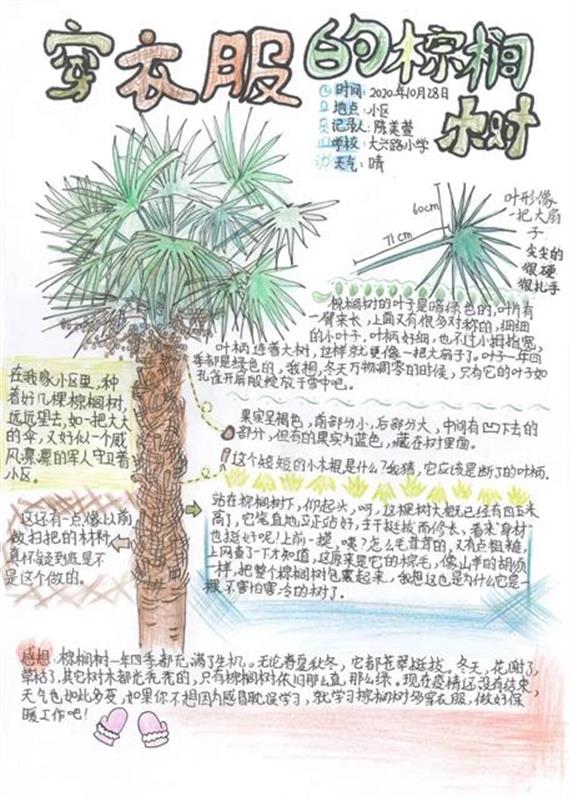 穿衣服的棕榈
树
时间：2020年10月28日
地点：小区
记录人：陈美萱
学校：大兴路小学
天气：晴
60cm
71cm
叶形像
一把大扇
子
尖尖的
很硬
很扎手
棕榈树的叶子是暗绿色的，叶片有
一臂来长，上面又有很多对称的，细细
的小叶子，叶柄好细，也不过小拇指宽，
叶柄连着大树，这样就更像一把大扇子了。叶子一年四
季都是绿色的，我想，冬天万物凋零的时候，只有它的叶子如
孔雀开屏般绽放于雪中吧。
在我家小区里，种
着好几棵棕榈树，
远远望去，如一把大大
的伞，又好似一个威
风凛凛的军人守卫着
小区。
果实呈褐色，前部分小，后部分大，中间有凹下去的
部分，但有的果实为蓝色，藏在树里面。
这个短短的小木棍是什么？我猜，它应该是断了的叶柄。
这还有一点像以前
做扫把的材料，
真怀疑到底是不
是这个做的。
站在棕榈树下，仰起头，呵，这棵树大概已经有四五米
高了，它笔直地立正站好，主干挺拔而修长，看来"身材"
也挺好呢！上前一摸，咦？怎么毛茸茸的，又有点粗糙，
上网查了一下才知道，这原来是它的棕毛，像山羊的胡须
一样，把整个棕榈树包裹起来，我想这也是为什么它是一
棵不害怕寒冷的树了。
感想：棕榈树一年四季都充满了生机。无论春夏秋冬，它都苍翠挺拔，冬天，花谢了，
草枯了，其它树木都光秃秃的，只有棕榈树依旧那么直，那么绿。现在疫情还没有结束，
天气也如此多变，如果你不想因为感冒耽误学习，就学习棕榈树多穿衣服，做好保
暖工作吧！